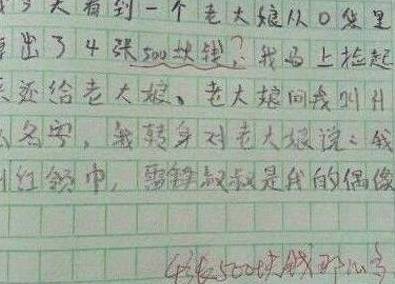 今天看到一个老大娘从口袋里
掉出了4张500块钱?我马上捡起
来还给老大娘、老大娘问我叫什
么名字,我转身对老大娘说:我
叫红领巾,雷锋叔叔是我的偶像
4张500块钱